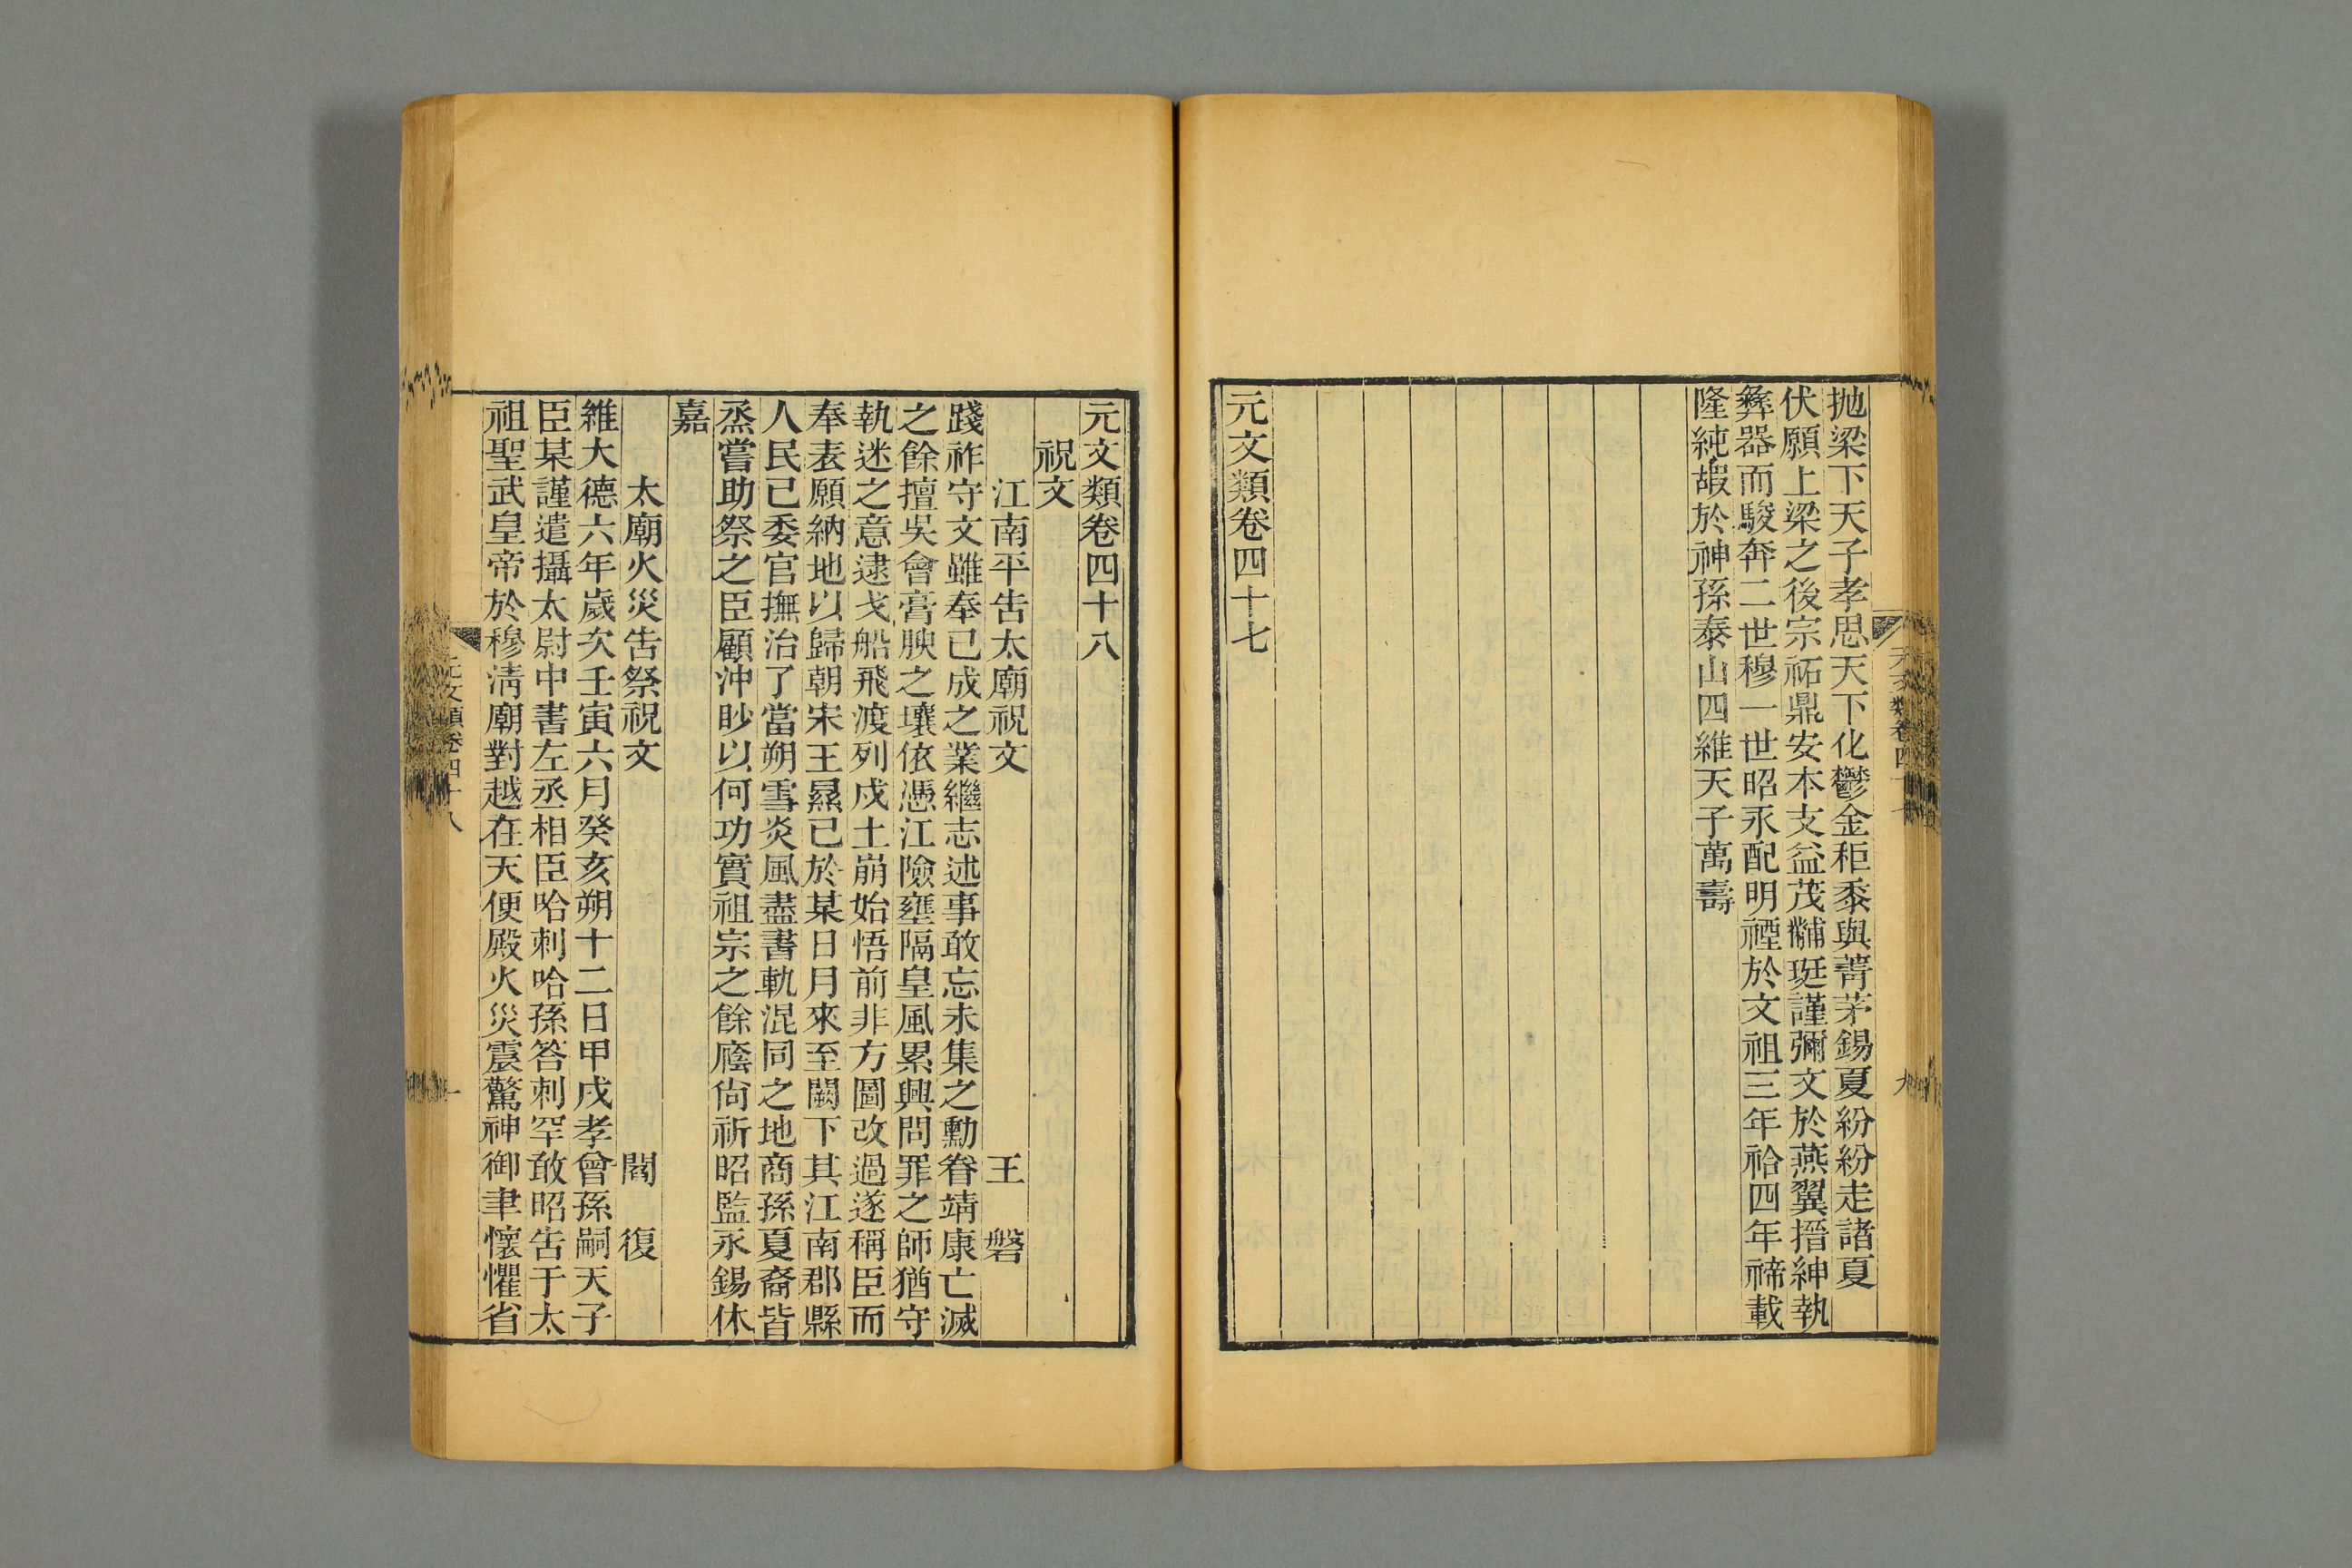 拋梁下天子孝思天下化鬱金秬黍與菁茅錫夏紛紛走諸夏
伏願上梁之後宗祏鼎安本支益茂黼珽謹彌文於燕翼搢紳執
彝器而駿奔二世穆一世昭永配明禋於文祖三年祫四年禘載
隆純嘏於神孫泰山四維天子萬壽
元文類卷四十七
元文類卷四十八
祝文
江南平告太廟祝文 王磐
踐祚守文雖奉已成之業繼志述事敢忘未集之勳眷靖康亡滅
之餘擅吳會膏腴之壤依憑江險壅隔皇風累興問罪之師猶守
執迷之意逮戈船飛渡列戍土崩始悟前非方圖改過遂稱臣而
奉表願納地以歸朝宋王㬎已於某日月來至闕下其江南郡縣
人民已委官撫治了當朔雪炎風盡書軌混同之地商孫夏裔皆
烝嘗助祭之臣顧沖眇以何功實祖宗之餘廕尙祈昭監永錫休
嘉
太廟火災告祭祝文 閻復
維大德六年歲次壬寅六月癸亥朔十二日甲戌孝曾孫嗣天子
臣某謹遣攝太尉中書左丞相臣哈剌哈孫答剌罕敢昭告于太
祖聖武皇帝於穆淸廟對越在天便殿火災震驚神御聿懷懼省
元文類卷四十八